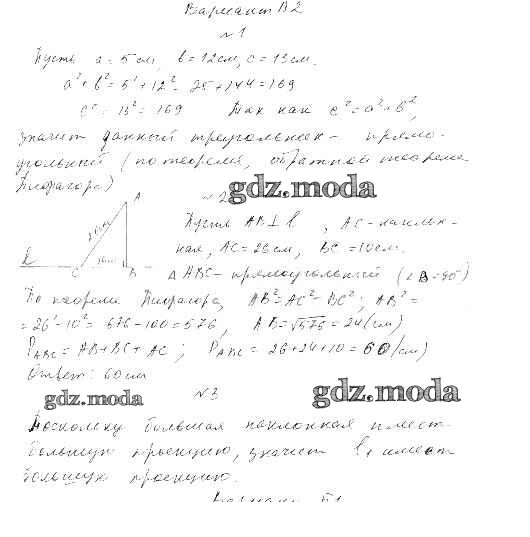 Вариант В2
№1
Пусть a = 5 см, b = 12 см, c = 13 см.
a² + b² = 5² + 12² = 25 + 144 = 169
c² = 13² = 169 Так как c² = a² + b²,
значит данный треугольник - прямо-
угольный (по теореме, обратной теореме
Пифагора)
№2
gdz.moda
A
Пусть AB ⊥ l, AC - наклон-
ная, AC = 26 см, BC = 10 см.
26см
l C 10см B
△ABC - прямоугольный (∠B = 90°)
По теореме Пифагора, AB² = AC² - BC²; AB² =
= 26² - 10² = 676 - 100 = 576, AB = √576 = 24 (см)
P ABC = AB + BC + AC; P ABC = 26 + 24 + 10 = 60 (см)
Ответ: 60 см
gdz.moda №3 gdz.moda
Поскольку большая наклонная имеет
большую проекцию, значит l₁ имеет
большую проекцию.